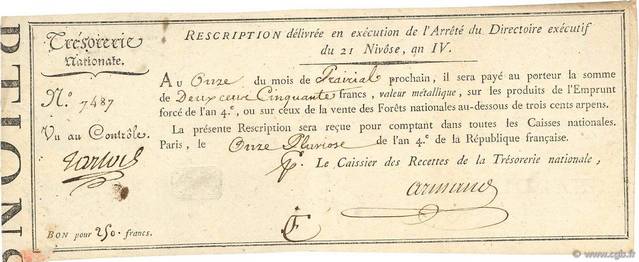 RESCRIPTION délivrée en exécution de l'Arrêté du Directoire exécutif
du 21 Nivôse, an IV.
Trésorerie
Nationale.
N.° 7487
Vu au Contrôle.
AU Onze du mois de Prairial prochain, il sera payé au porteur la somme
de Deux cent Cinquante francs, valeur métallique, sur les produits de l'Emprunt
forcé de l'an 4.e, ou sur ceux de la vente des Forêts nationales au-dessous de trois cents arpens.
La présente Rescription sera reçue pour comptant dans toutes les Caisses nationales.
Paris, le Onze Pluviose de l'an 4.e de la République française.
Le Caissier des Recettes de la Trésorerie nationale,
armand
BON pour 250. francs.
© www.cgb.fr